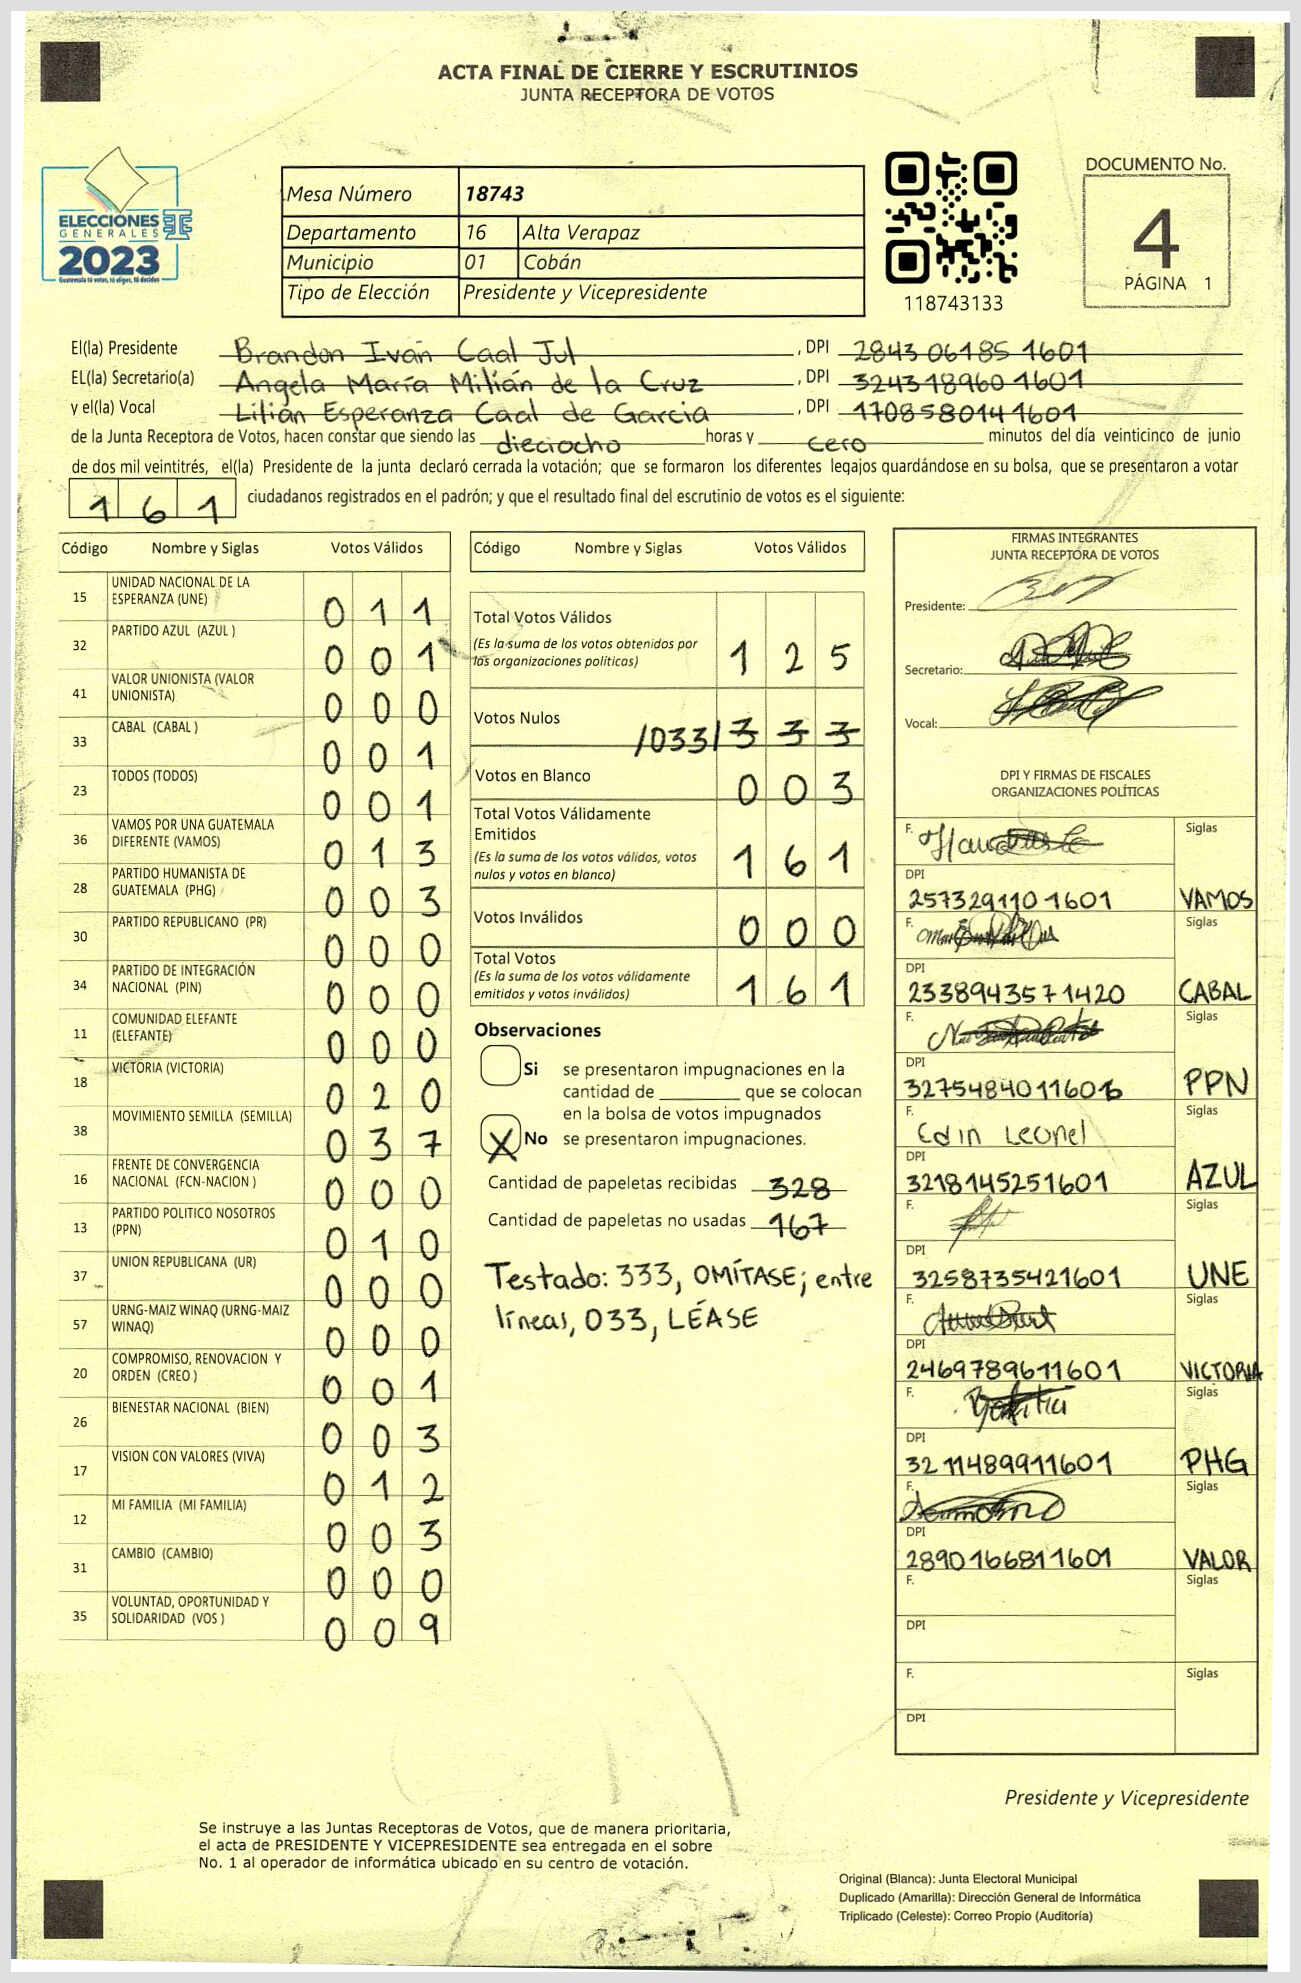 ACTA FINAL DE CIERRE Y ESCRUTINIOS
JUNTA RECEPTORA DE VOTOS
ELECCIONES
GENERALES
2023
Guatemala tú votas, tú eliges, tú decides
Mesa Número 18743
Departamento 16 Alta Verapaz
Municipio 01 Cobán
Tipo de Elección Presidente y Vicepresidente
118743133
DOCUMENTO No.
4
PÁGINA 1
El(la) Presidente Brandon Iván Caal Jul, DPI 2843 06185 1601
EL(la) Secretario(a) Angela María Milián de la Cruz, DPI 324318960 1601
y el(la) Vocal Lilián Esperanza Caal de Garcia, DPI 170858014 1601
de la Junta Receptora de Votos, hacen constar que siendo las dieciocho horas y cero minutos del día veinticinco de junio
de dos mil veintitrés, el(la) Presidente de la junta declaró cerrada la votación; que se formaron los diferentes legajos quardándose en su bolsa, que se presentaron a votar
161 ciudadanos registrados en el padrón; y que el resultado final del escrutinio de votos es el siguiente:
Código Nombre y Siglas Votos Válidos
15 UNIDAD NACIONAL DE LA
ESPERANZA (UNE) 011
32 PARTIDO AZUL (AZUL ) 001
41 VALOR UNIONISTA (VALOR
UNIONISTA) 000
33 CABAL (CABAL ) 001
23 TODOS (TODOS) 001
36 VAMOS POR UNA GUATEMALA
DIFERENTE (VAMOS) 013
28 PARTIDO HUMANISTA DE
GUATEMALA (PHG) 003
30 PARTIDO REPUBLICANO (PR) 000
34 PARTIDO DE INTEGRACIÓN
NACIONAL (PIN) 000
11 COMUNIDAD ELEFANTE
(ELEFANTE) 000
18 VICTORIA (VICTORIA) 020
38 MOVIMIENTO SEMILLA (SEMILLA) 037
16 FRENTE DE CONVERGENCIA
NACIONAL (FCN-NACION ) 000
13 PARTIDO POLITICO NOSOTROS
(PPN) 010
37 UNION REPUBLICANA (UR) 000
57 URNG-MAIZ WINAQ (URNG-MAIZ
WINAQ) 000
20 COMPROMISO, RENOVACION Y
ORDEN (CREO ) 001
26 BIENESTAR NACIONAL (BIEN) 003
17 VISION CON VALORES (VIVA) 012
12 MI FAMILIA (MI FAMILIA) 003
31 CAMBIO (CAMBIO) 000
35 VOLUNTAD, OPORTUNIDAD Y
SOLIDARIDAD (VOS ) 009
Código Nombre y Siglas Votos Válidos
Total Votos Válidos
(Es la suma de los votos obtenidos por
las organizaciones políticas) 125
Votos Nulos /033/ 333
Votos en Blanco 003
Total Votos Válidamente
Emitidos
(Es la suma de los votos válidos, votos
nulos y votos en blanco) 161
Votos Inválidos 000
Total Votos
(Es la suma de los votos válidamente
emitidos y votos inválidos) 161
Observaciones
Si se presentaron impugnaciones en la
cantidad de ________ que se colocan
en la bolsa de votos impugnados
X No se presentaron impugnaciones.
Cantidad de papeletas recibidas 328
Cantidad de papeletas no usadas 167
Testado: 333, OMÍTASE; entre
líneas, 033, LÉASE
FIRMAS INTEGRANTES
JUNTA RECEPTORA DE VOTOS
Presidente:
Secretario:
Vocal:
DPI Y FIRMAS DE FISCALES
ORGANIZACIONES POLÍTICAS
F. Siglas
DPI
257329110 1601 VAMOS
F. Siglas
DPI
2338943571420 CABAL
F. Siglas
DPI
3275484011601 PPN
F. Edin Leonel Siglas
DPI
3218145251601 AZUL
F. Siglas
DPI
3258735421601 UNE
F. Siglas
DPI
2469789611601 VICTORIA
F. Siglas
DPI
3211489911601 PHG
F. Siglas
DPI
2890166811601 VALOR
F. Siglas
DPI
F. Siglas
DPI
Presidente y Vicepresidente
Se instruye a las Juntas Receptoras de Votos, que de manera prioritaria,
el acta de PRESIDENTE Y VICEPRESIDENTE sea entregada en el sobre
No. 1 al operador de informática ubicado en su centro de votación.
Original (Blanca): Junta Electoral Municipal
Duplicado (Amarilla): Dirección General de Informática
Triplicado (Celeste): Correo Propio (Auditoría)